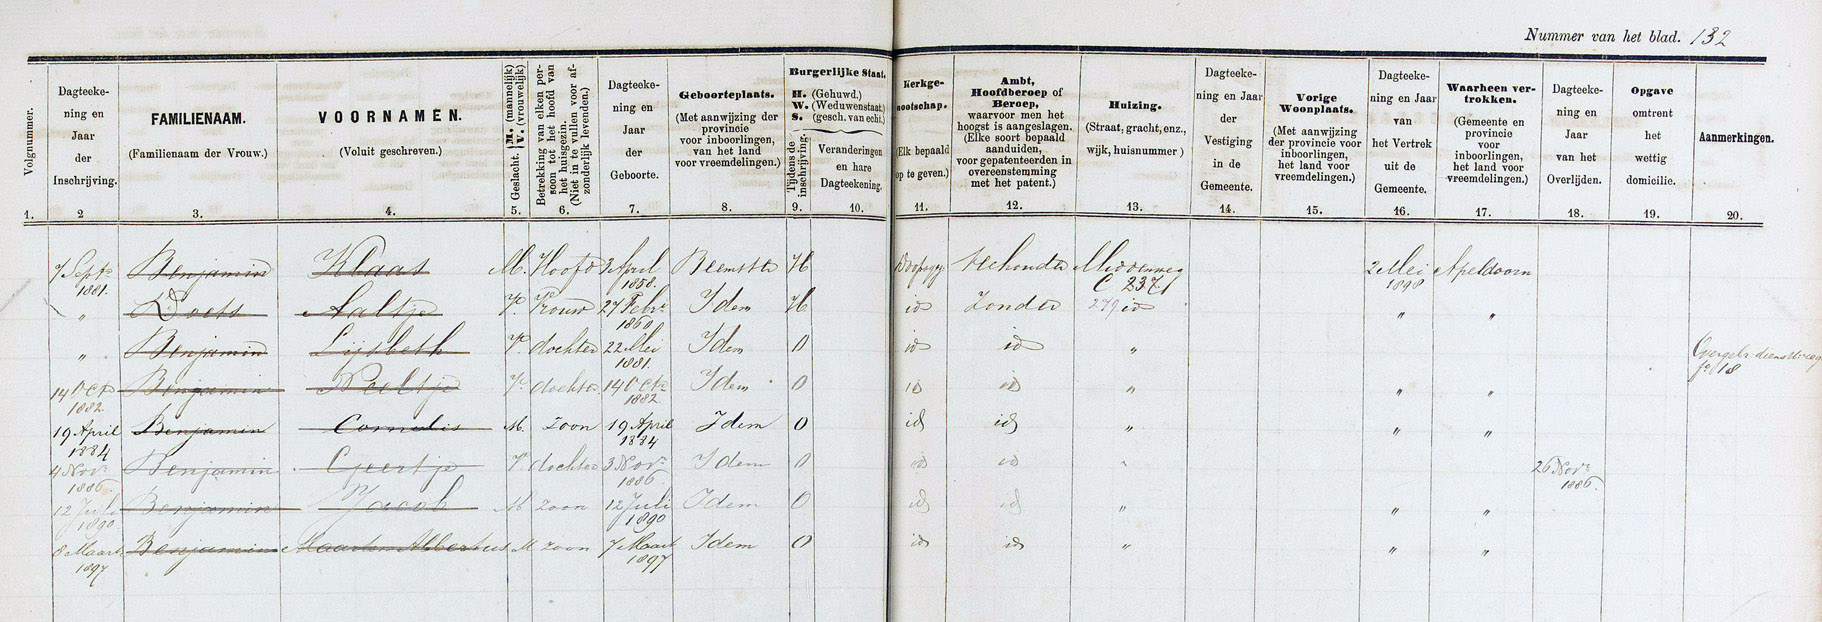 Nummer van het blad. 132
Volgnummer.
1.
Dagteeke-
ning en
Jaar
der
Inschrijving.
2
FAMILIENAAM.
(Familienaam der Vrouw.)
3.
VOORNAMEN.
(Voluit geschreven.)
4.
Geslacht. M. (mannelijk)
V. (vrouwelijk)
5.
Betrekking van elken per-
soon tot het hoofd van
het huisgezin.
(Niet in te vullen voor af-
zonderlijk levenden.)
6.
Dagteeke-
ning en
Jaar
der
Geboorte.
7.
Geboorteplaats.
(Met aanwijzing der
provincie
voor inboorlingen,
van het land
voor vreemdelingen.)
8.
Burgerlijke Staat.
H. (Gehuwd.)
W. (Weduwenstaat.)
S. (gesch. van echt.)
Tijdens de
inschrijving.
9.
Veranderingen
en hare
Dagteekening.
10.
Kerkge-
nootschap.
(Elk bepaald
op te geven.)
11.
Ambt,
Hoofdberoep of
Beroep,
waarvoor men het
hoogst is aangeslagen.
(Elke soort bepaald
aanduiden,
voor gepatenteerden in
overeenstemming
met het patent.)
12.
Huizing.
(Straat, gracht, enz.,
wijk, huisnummer)
13.
Dagteeke-
ning en Jaar
der
Vestiging
in de
Gemeente.
14.
Vorige
Woonplaats.
(Met aanwijzing
der provincie voor
inboorlingen,
het land voor
vreemdelingen.)
15.
Dagteeke-
ning en Jaar
van
het Vertrek
uit de
Gemeente.
16.
Waarheen ver-
trokken.
(Gemeente en
provincie
voor
inboorlingen,
het land voor
vreemdelingen.)
17.
Dagteeke-
ning en
Jaar
van het
Overlijden.
18.
Opgave
omtrent
het
wettig
domicilie.
19.
Aanmerkingen.
20.
7 Septr 1881. Benjamin Klaas M. Hoofd 3 April 1858. Beemster H Middenweg C 237 2 Mei 1898 Apeldoorn
" Doets Aaltje V. Vrouw 27 Febr. 1860 Idem H id Zonder 279 id " "
" Benjamin Lijsbeth V. dochter 22 Mei 1881. Idem O id id "
fo 18
14 Oct 1882 Benjamin Neeltje V. dochter 14 Octr 1882 Idem O id id " " "
19 April 1884 Benjamin Cornelis M. zoon 19 April 1884 Idem O id id " " "
4 Nov. 1886 Benjamin Geertje V. dochter 3 Nov. 1886. Idem O id id " 26 Novr 1886.
12 Juli 1890 Benjamin Jacob M zoon 12 Juli 1890 Idem O id id " " "
8 Maart 1897 Benjamin Maarten Albertus M zoon 7 Maart 1897 Idem O id id " " "